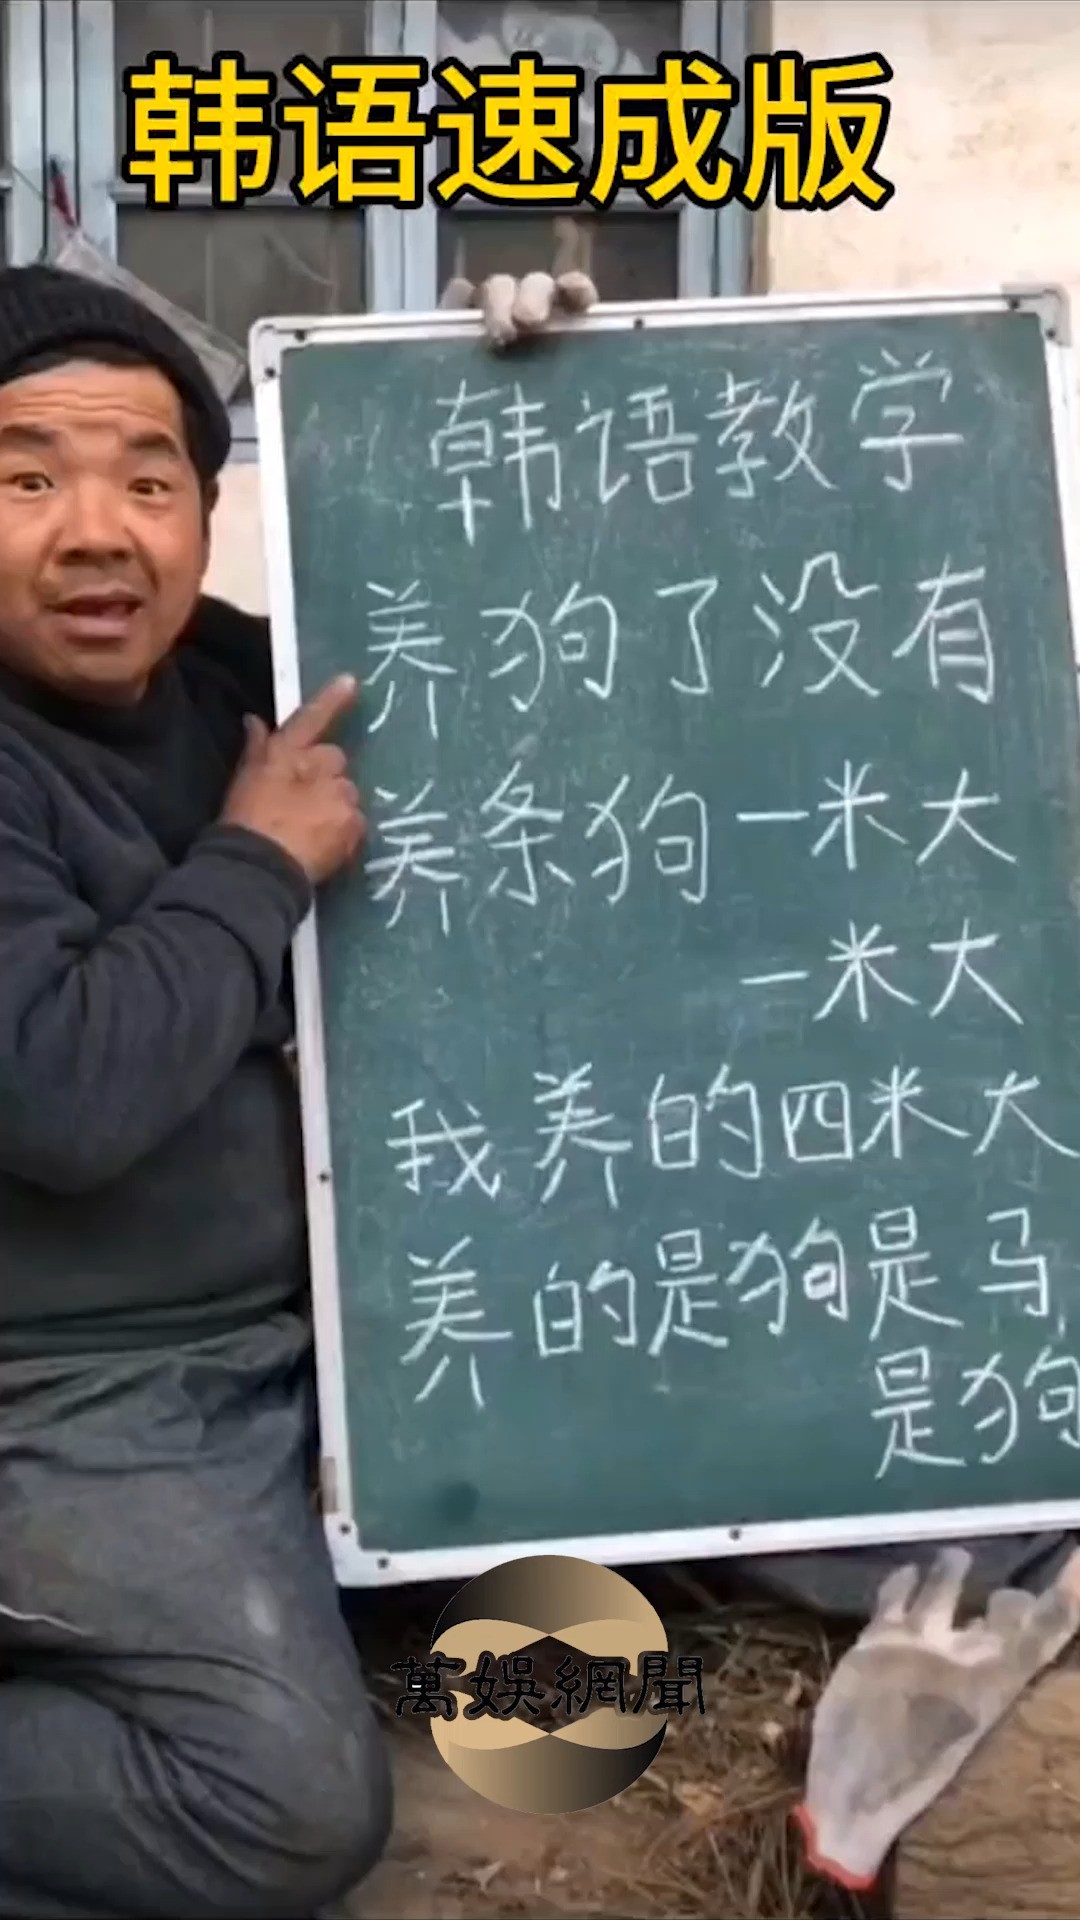 韩语速成版
韩语教学
养狗了没有
养条狗一米大
一米大
我养的四米大
养的是狗是马
是狗
萬娛網聞